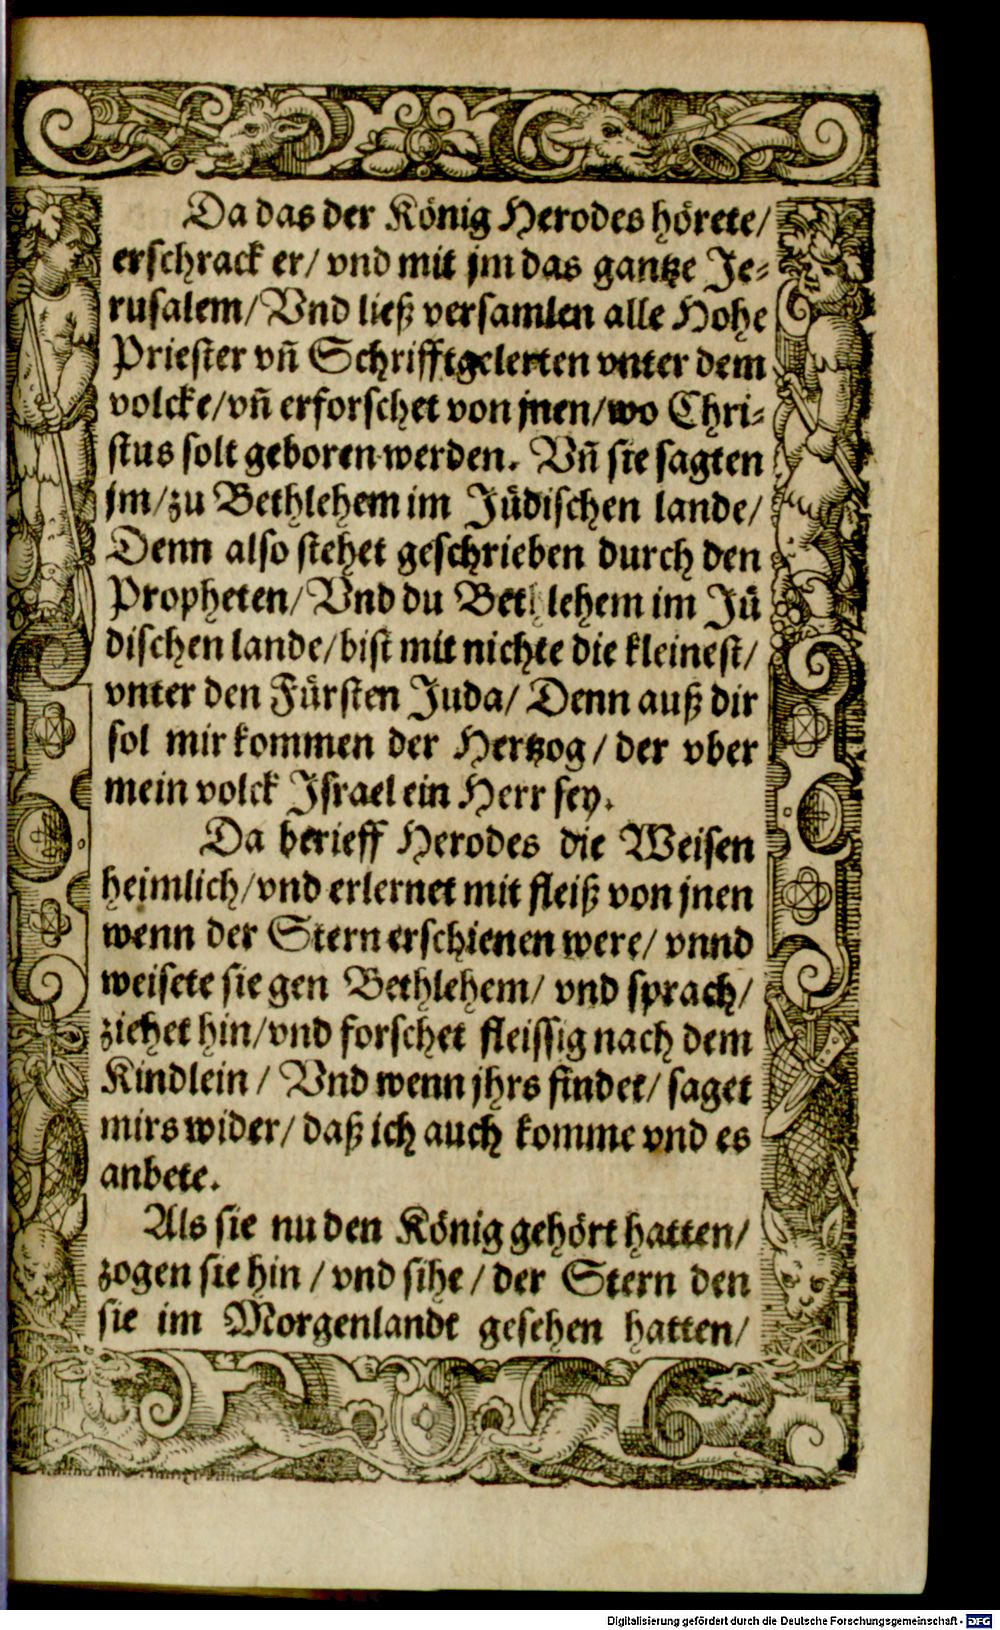 Da das der König Herodes hörete/
erschrack er/ vnd mit jm das gantze Je⸗
rusalem/ Vnd ließ versamlen alle Hohe
Priester vñ Schrifftgelerten vnter dem
volcke/ vñ erforschet von jnen/ wo Chri⸗
stus solt geboren werden. Vñ sie sagten
jm/ zu Bethlehem im Jüdischen lande/
Denn also stehet geschrieben durch den
Propheten/ Vnd du Bethlehem im Jü
dischen lande/ bist mit nichte die kleinest/
vnter den Fürsten Juda/ Denn auß dir
sol mir kommen der Hertzog/ der vber
mein volck Israel ein Herr sey.
Da berieff Herodes die Weisen
heimlich/ vnd erlernet mit fleiß von jnen
wenn der Stern erschienen were/ vnnd
weisete sie gen Bethlehem/ vnd sprach/
ziehet hin/ vnd forschet fleissig nach dem
Kindlein/ Vnd wenn jhrs findet/ saget
mirs wider/ daß ich auch komme vnd es
anbete.
Als sie nu den König gehört hatten/
zogen sie hin/ vnd sihe/ der Stern den
sie im Morgenlandt gesehen hatten/
Digitalisierung gefördert durch die Deutsche Forschungsgemeinschaft - DFG